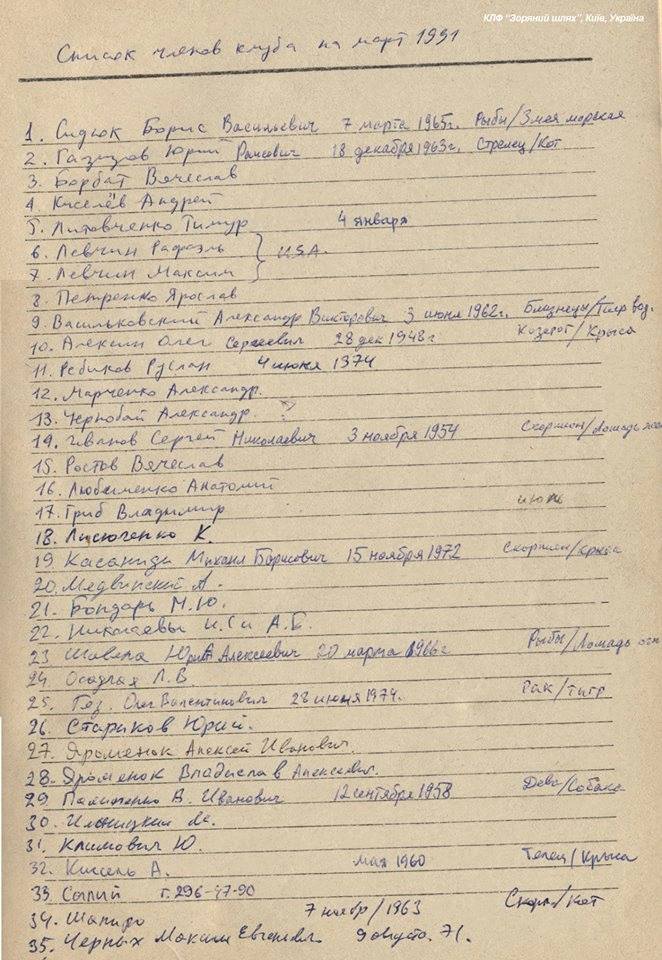 КЛФ "Зоряний шлях", Київ, Україна
Список членов клуба на март 1991
1. Сидюк Борис Васильевич 7 марта 1965г. Рыбы/Змея морская
2. Газизов Юрий 18 декабря 1963г. Стрелец/Кот
3. Борбат Вячеслав
4. Киселёв Андрей
5. Литовченко Тимур 4 января
6. Левчин Рафаэль } U.S.A.
7. Левчин Максим
8. Петренко Ярослав
9. Васильковский Александр Викторович 3 июня 1962г. Близнецы/Тигр вод.
10. Алексин Олег Сергеевич 28 дек 1948г Козерог/Крыса
11. Ребиков Руслан 4 июня 1974
12. Марченко Александр.
13. Чернобай Александр. ?
14. Иванов Сергей Николаевич 3 ноября 1954 Скорпион/Лошадь
15. Ростов Вячеслав
16. Любименко Анатолий
17. Гриб Владимир июль
18. К.
19. Касаниди Михаил Борисович 15 ноября 1972 Скорпион/Крыса
20. Медвинский А.
21. Бондарь М.Ю.
22. Николаевы и А.Б.
23 Шавела Юрий Алексеевич 20 марта 1966г Рыбы/Лошадь огн
24 Осадчая Л.В
25. Гез. Олег Валентинович 28 июня 1974. Рак/Тигр
26. Стариков Юрий.
27. Яроменок Алексей Иванович.
28. Яроменок Владислав Алексеевич.
29 В. Иванович 12 сентября 1958 Дева/Собака
30. Ильницкий
31. Климович Ю.
32. Кисель А. мая 1960 Телец/Крыса
33. т. 296-47-90
34. Шапиро 7 ноябр/1963 Скорп/Кот
35. Черных Максим Евгеньевич 9 августа. 71г.